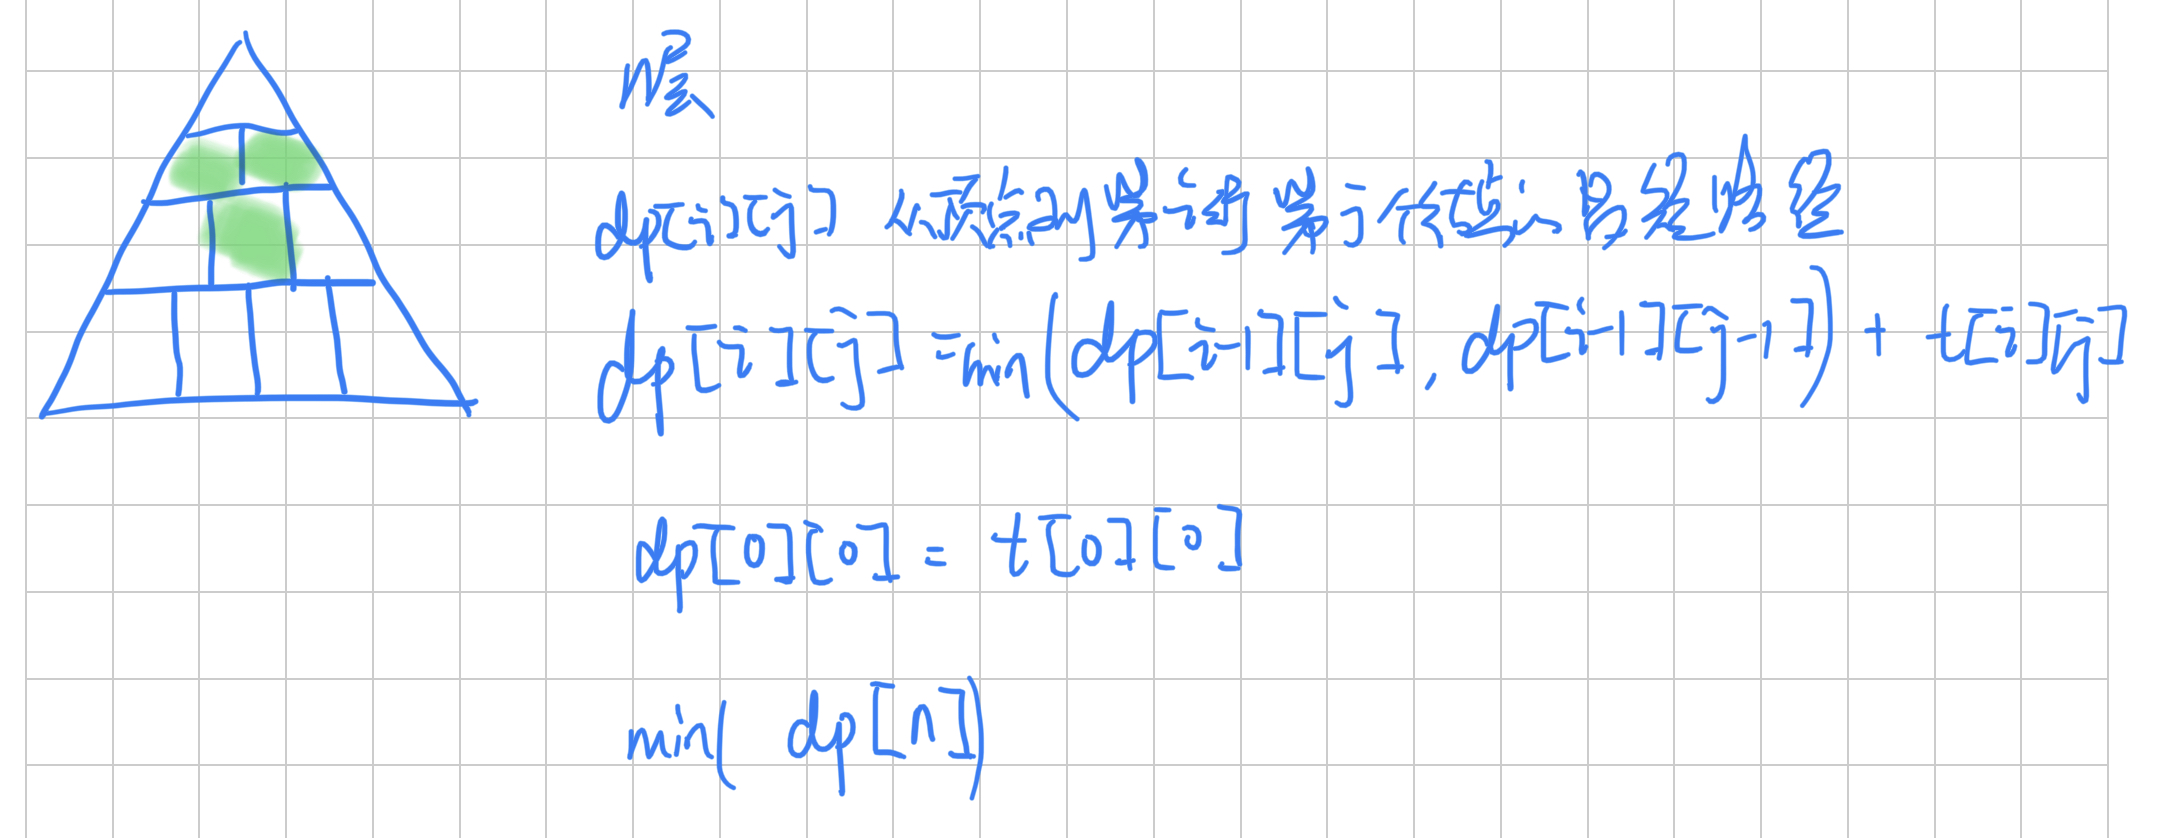 n层
dp[i][j] 从顶点到第i行第j个位置的最短路径
dp[i][j] = min(dp[i-1][j], dp[i-1][j-1]) + t[i][j]
dp[0][0] = t[0][0]
min( dp[n])